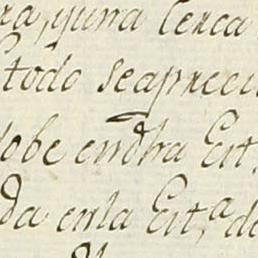 ra, y una Cerca
todo seapreci
obe endha Cit.
da enla Cit,ª de